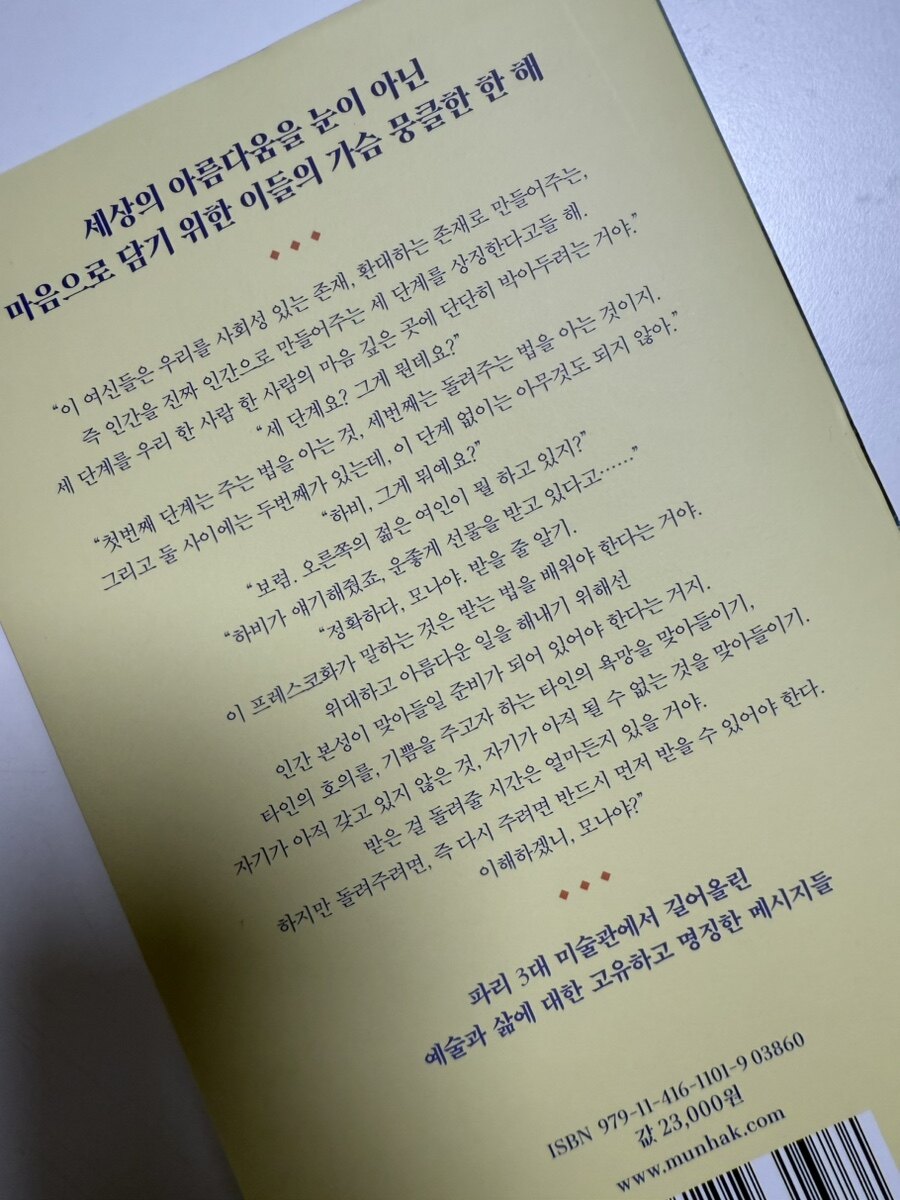 세상의 아름다움을 눈이 아닌
마음으로 담기 위한 이들의 가슴 뭉클한 한 해
“이 여신들은 우리를 사회성 있는 존재, 환대하는 존재로 만들어주는,
즉 인간을 진짜 인간으로 만들어주는 세 단계를 상징한다고들 해.
세 단계를 우리 한 사람 한 사람의 마음 깊은 곳에 단단히 박아두려는 거야.”
“세 단계요? 그게 뭔데요?”
“첫번째 단계는 주는 법을 아는 것, 세번째는 돌려주는 법을 아는 것이지.
그리고 둘 사이에는 두번째가 있는데, 이 단계 없이는 아무것도 되지 않아.”
“하비, 그게 뭐예요?”
“보렴. 오른쪽의 젊은 여인이 뭘 하고 있지?”
“하비가 얘기해줬죠, 운좋게 선물을 받고 있다고……”
“정확하다, 모나야. 받을 줄 알기.
이 프레스코화가 말하는 것은 받는 법을 배워야 한다는 거야.
위대하고 아름다운 일을 해내기 위해선
인간 본성이 맞아들일 준비가 되어 있어야 한다는 거지.
타인의 호의를, 기쁨을 주고자 하는 타인의 욕망을 맞아들이기,
자기가 아직 갖고 있지 않은 것, 자기가 아직 될 수 없는 것을 맞아들이기.
받은 걸 돌려줄 시간은 얼마든지 있을 거야.
하지만 돌려주려면, 즉 다시 주려면 반드시 먼저 받을 수 있어야 한다.
이해하겠니, 모나야?”
파리 3대 미술관에서 길어올린
예술과 삶에 대한 고유하고 명징한 메시지들
ISBN 979-11-416-1101-9 03860
값 23,000원
www.munhak.com